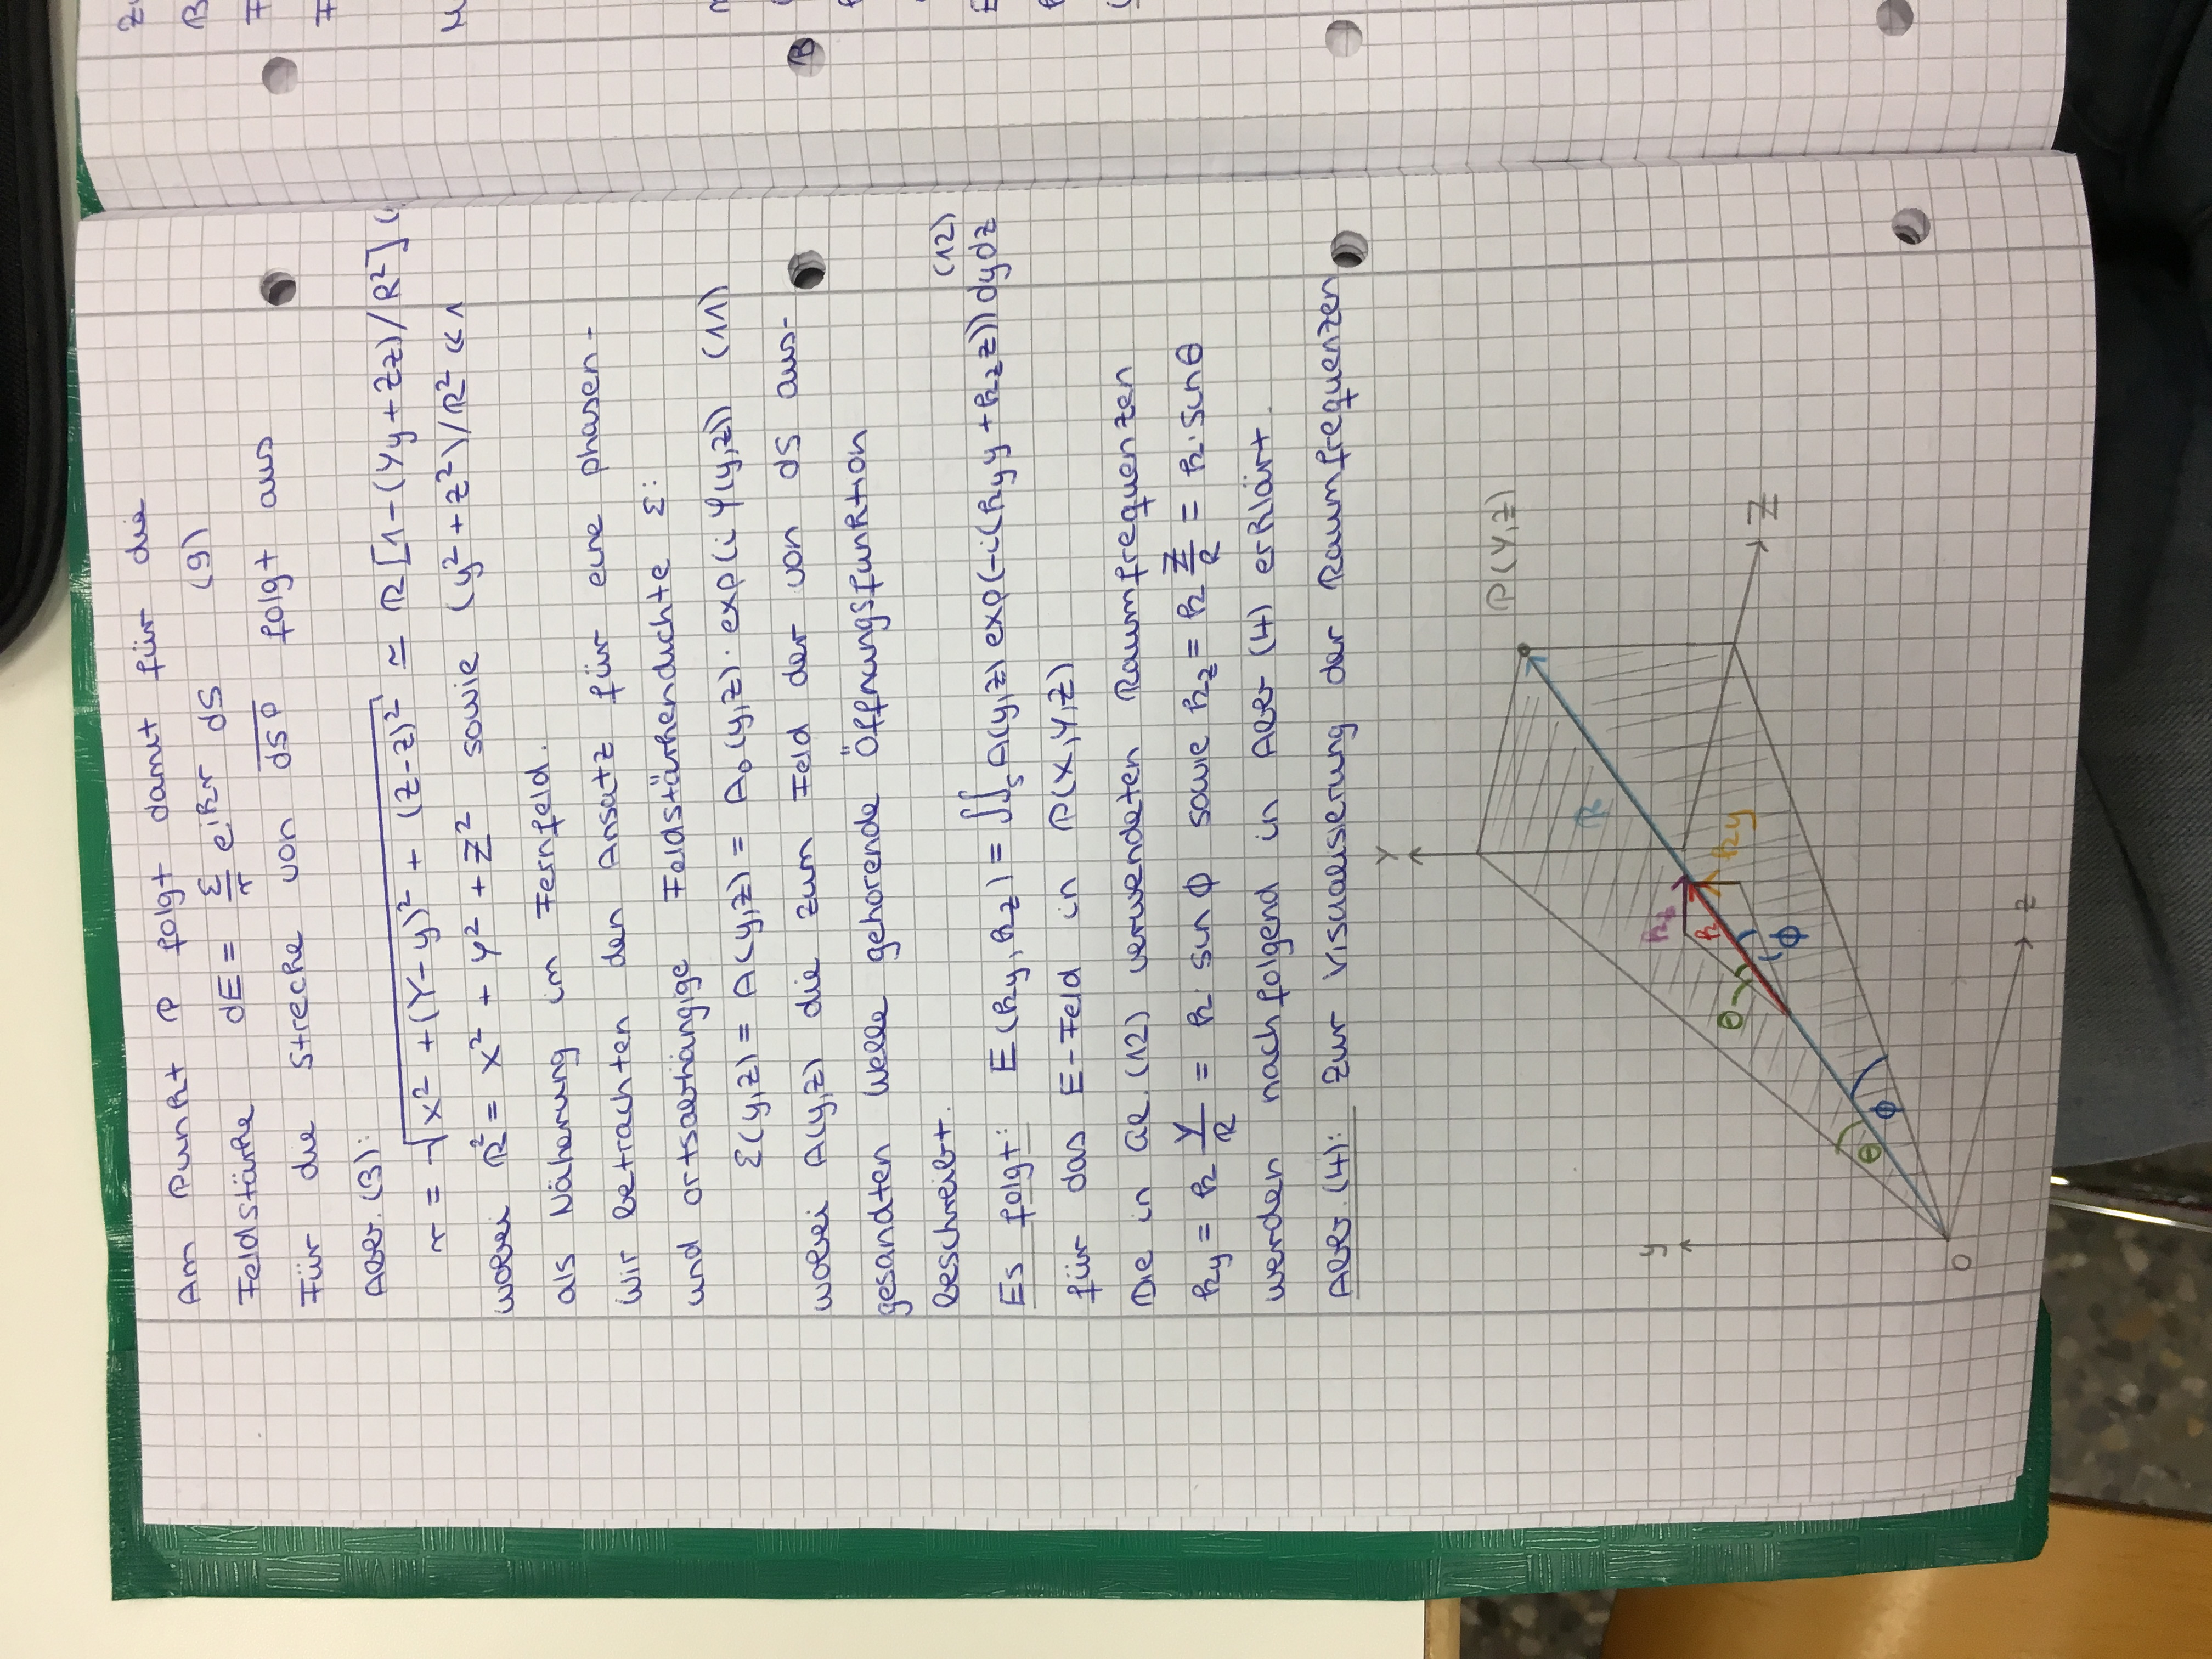 Am Punkt P folgt damit für die
Feldstärke dE = ε/r e^{ikr} dS (9)
Für die Strecke von \overline{dSP} folgt aus
Abb. (3):
r = √(x² + (Y-y)² + (Z-z)²) ≃ R[1-(Yy+Zz)/R²] (
wobei R² = x² + Y² + Z² sowie (y² + z²)/R² ≪ 1
als Näherung im Fernfeld.
Wir betrachten den Ansatz für eine phasen-
und ortsabhängige Feldstärkendichte ε:
ε(y,z) = A(y,z) = A₀(y,z) · exp(i φ(y,z)) (11)
wobei A(y,z) die zum Feld der von dS aus-
gesandten Welle gehörende Öffnungsfunktion
beschreibt.
(12)
Es folgt: E(k_y, k_z) = ∬_S A(y,z) exp(-i(k_y y + k_z z)) dy dz
für das E-Feld in P(X,Y,Z)
Die in Gl. (12) verwendeten Raumfrequenzen
k_y = k Y/R = k · sin ϕ sowie k_z = k Z/R = k · sin θ
werden nachfolgend in Abb (4) erklärt.
Abb. (4): Zur Visualisierung der Raumfrequenzen
Y
P(Y,Z)
R
y
k_z
k
θ
k_y
ϕ
Z
θ
ϕ
O
z
B